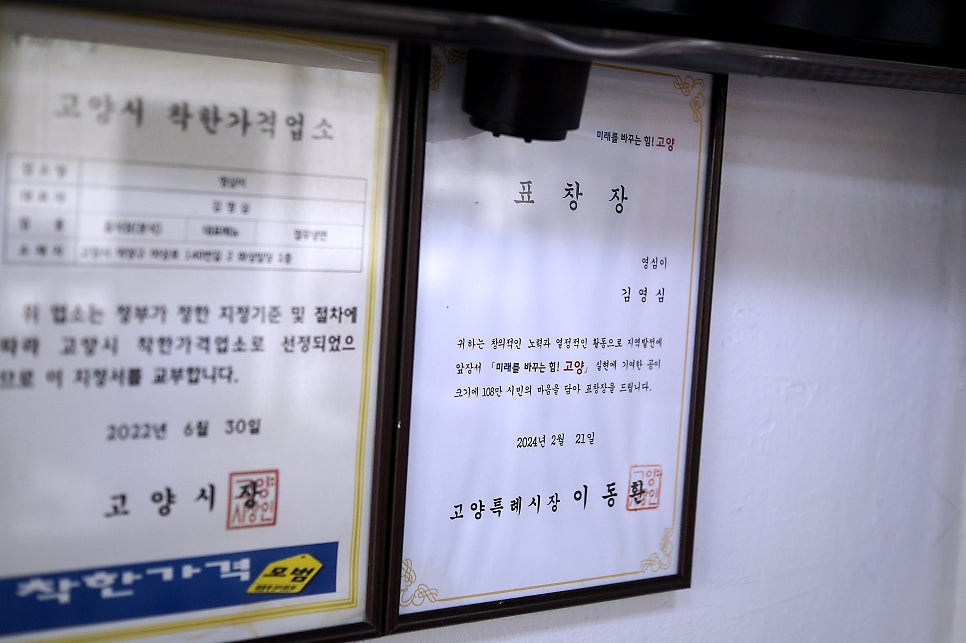 고양시 착한가격업소
업소명 영심이
대표자 김영심
업 종 음식점(분식) 대표메뉴 열무냉면
소재지 고양시 덕양구
위 업소는 정부가 정한 지정기준 및 절차에
따라 고양시 착한가격업소로 선정되었으
므로 이 지정서를 교부합니다.
2022년 6월 30일
고양시장
고양시장인
착한가격 모범
미래를 바꾸는 힘! 고양
표창장
영심이
김영심
귀하는 창의적인 노력과 열정적인 활동으로 지역발전에
앞장서 「미래를 바꾸는 힘! 고양」 실현에 기여한 공이
크기에 108만 시민의 마음을 담아 표창장을 드립니다.
2024년 2월 21일
고양특례시장 이동환
고양시장인